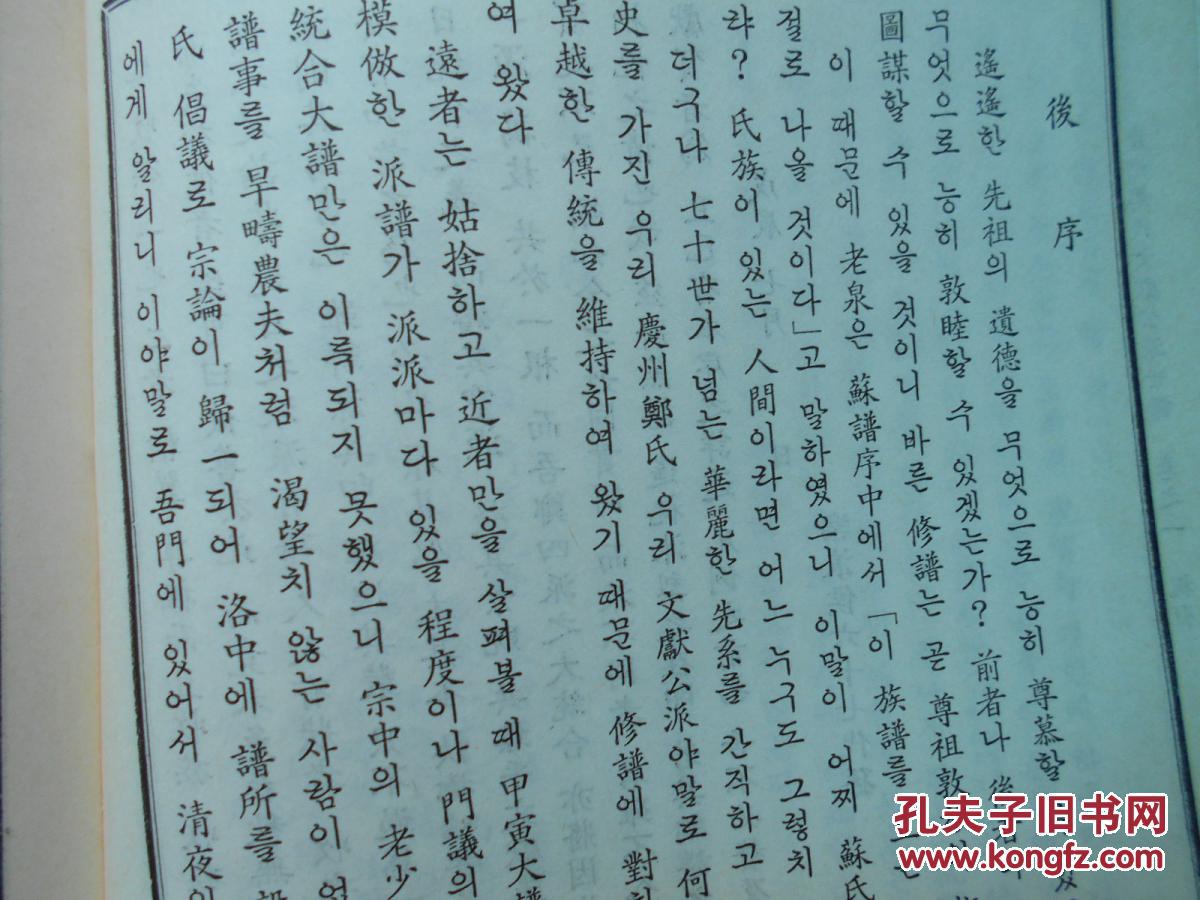 後序
遙遙한 先祖의 遺德을 무엇으로 능히 尊慕할
무엇으로 능히 敦睦할 수 있겠는가? 前者나 後者
圖謀할 수 있을 것이니 바른 修譜는 곧 尊祖敦
이 때문에 老泉은 蘇譜序中에서 「이 族譜를
걸로 나을 것이다」고 말하였으니 이말이 어찌 蘇氏
랴? 氏族이 있는 人間이라면 어느 누구도 그렇치
더구나 七十世가 넘는 華麗한 先系를 간직하고
史를 가진 우리 慶州鄭氏 우리 文獻公派야말로 何
卓越한 傳統을 維持하여 왔기 때문에 修譜에 對
여 왔다
遠者는 姑捨하고 近者만을 살펴볼 때 甲寅大
模倣한 派譜가 派派마다 있을 程度이나 門議의
統合大譜만은 이룩되지 못했으니 宗中의 老少
譜事를 旱疇農夫처럼 渴望치 않는 사람이
氏 倡議로 宗論이 歸一되어 洛中에 譜所를
에게 알리니 이야말로 吾門에 있어서 淸夜의
孔夫子旧书网
www.kongfz.com